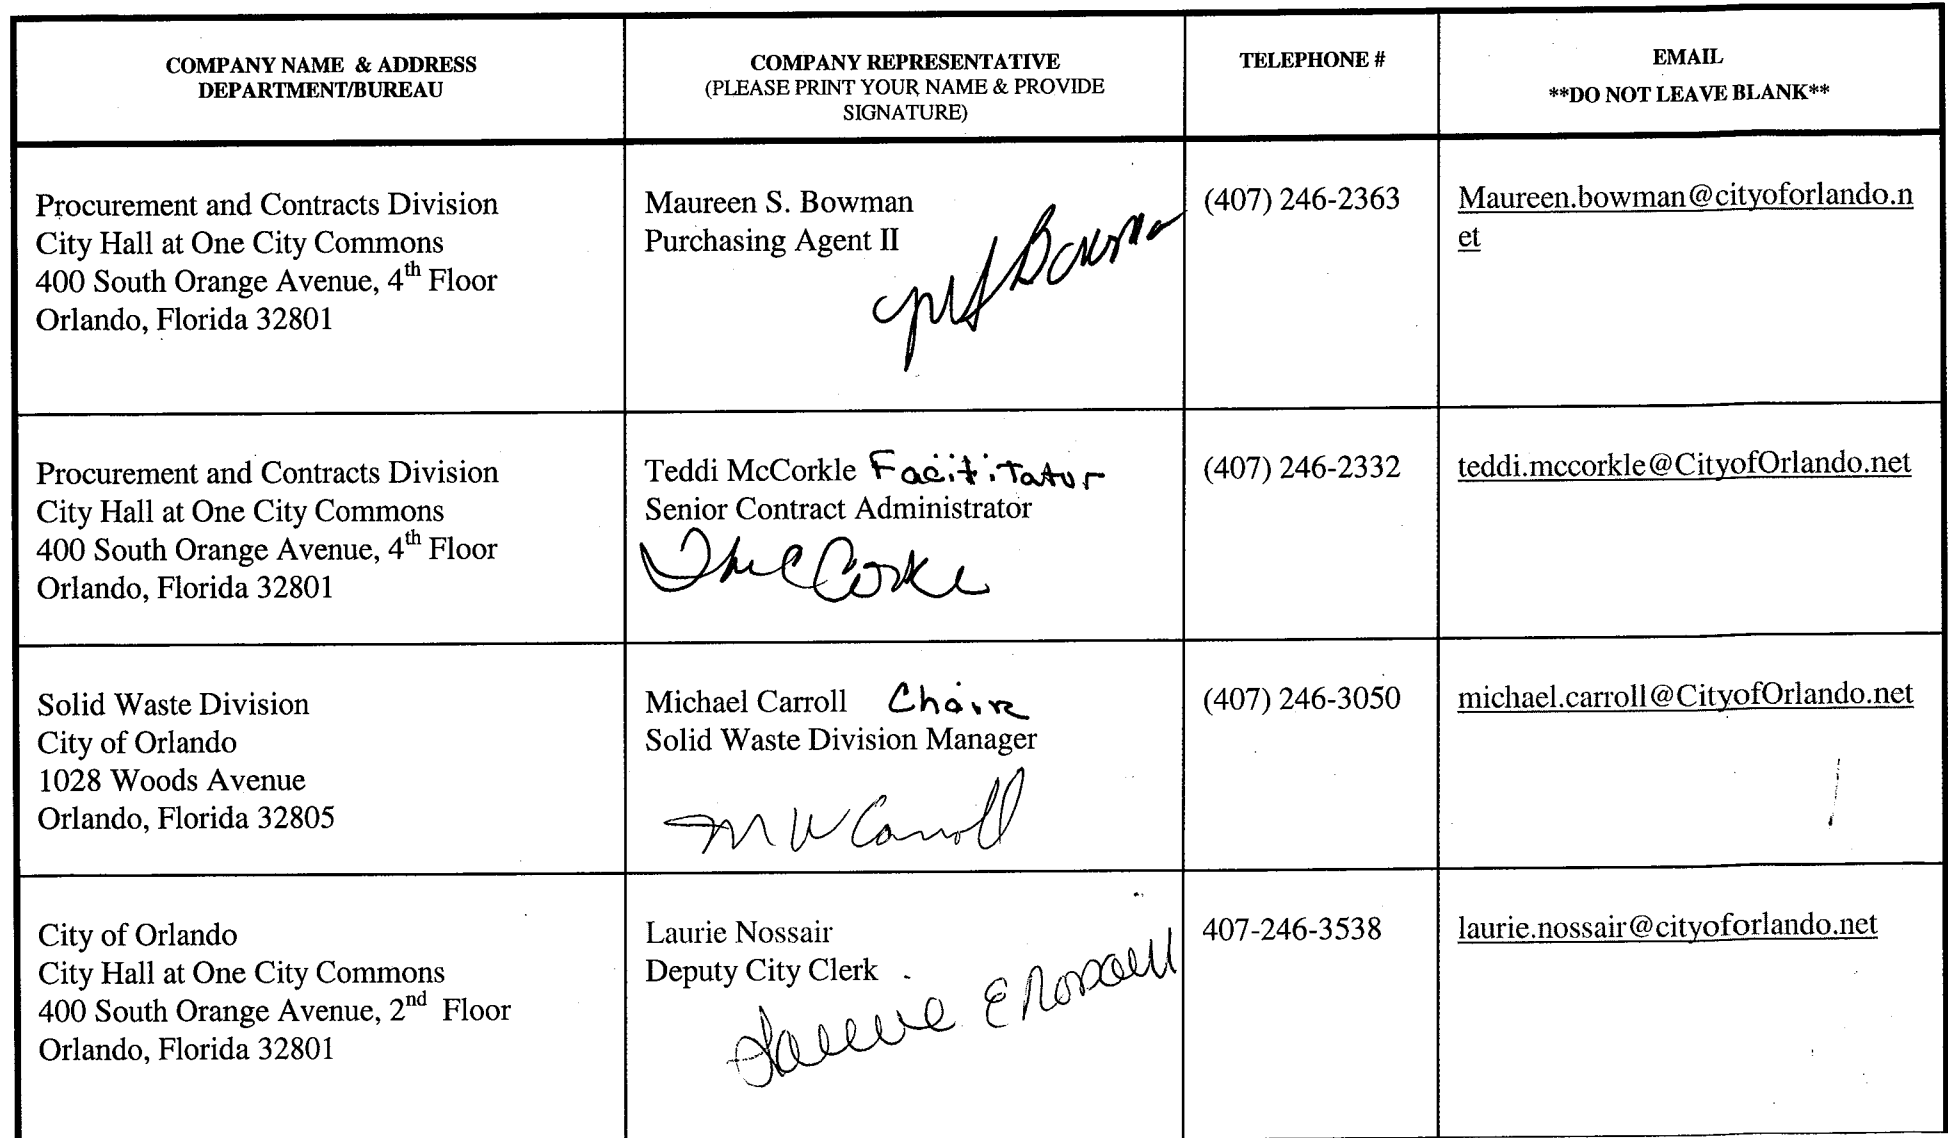 COMPANY NAME & ADDRESS
DEPARTMENT/BUREAU
COMPANY REPRESENTATIVE
(PLEASE PRINT YOUR NAME & PROVIDE
SIGNATURE)
TELEPHONE #
EMAIL
**DO NOT LEAVE BLANK**
Procurement and Contracts Division
City Hall at One City Commons
400 South Orange Avenue, 4th Floor
Orlando, Florida 32801
Maureen S. Bowman
Purchasing Agent II
MSBowman
(407) 246-2363
Maureen.bowman@cityoforlando.n
et
Procurement and Contracts Division
City Hall at One City Commons
400 South Orange Avenue, 4th Floor
Orlando, Florida 32801
Teddi McCorkle Facititator
Senior Contract Administrator
TMcCorkle
(407) 246-2332
teddi.mccorkle@CityofOrlando.net
Solid Waste Division
City of Orlando
1028 Woods Avenue
Orlando, Florida 32805
Michael Carroll Chair
Solid Waste Division Manager
M W Carroll
(407) 246-3050
michael.carroll@CityofOrlando.net
City of Orlando
City Hall at One City Commons
400 South Orange Avenue, 2nd Floor
Orlando, Florida 32801
Laurie Nossair
Deputy City Clerk
Laurie E Nossair
407-246-3538
laurie.nossair@cityoforlando.net